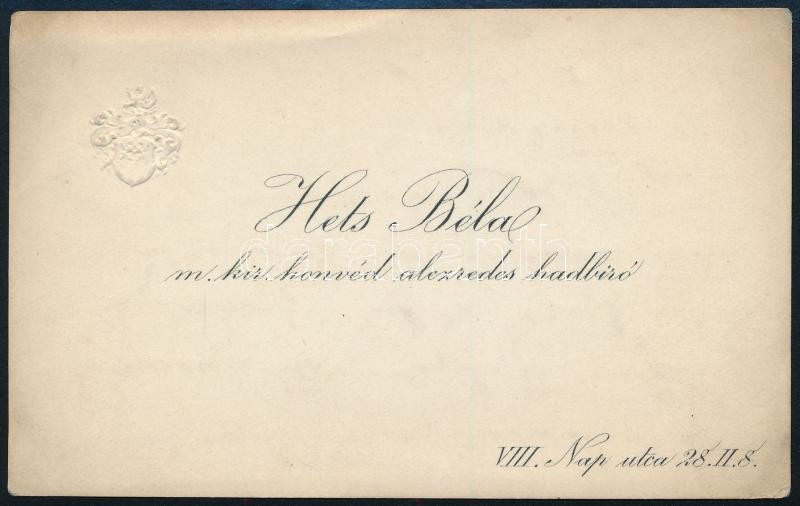 Hets Béla
m. kir. honvéd alezredes hadbiró
VIII. Nap utca 28. II. 8.
darabanth